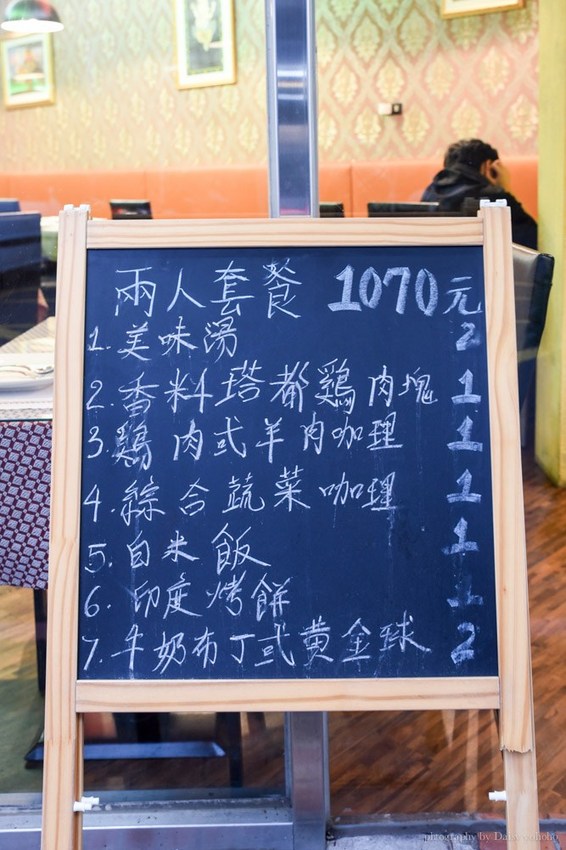 兩人套餐 1070元
1. 美味湯 2
2. 香料塔都鷄肉塊 1
3. 鷄肉或羊肉咖哩 1
4. 綜合蔬菜咖哩 1
5. 白米飯 1
6. 印度烤餅 1
7. 牛奶布丁或黃金球 2
photography by Daisyohoho